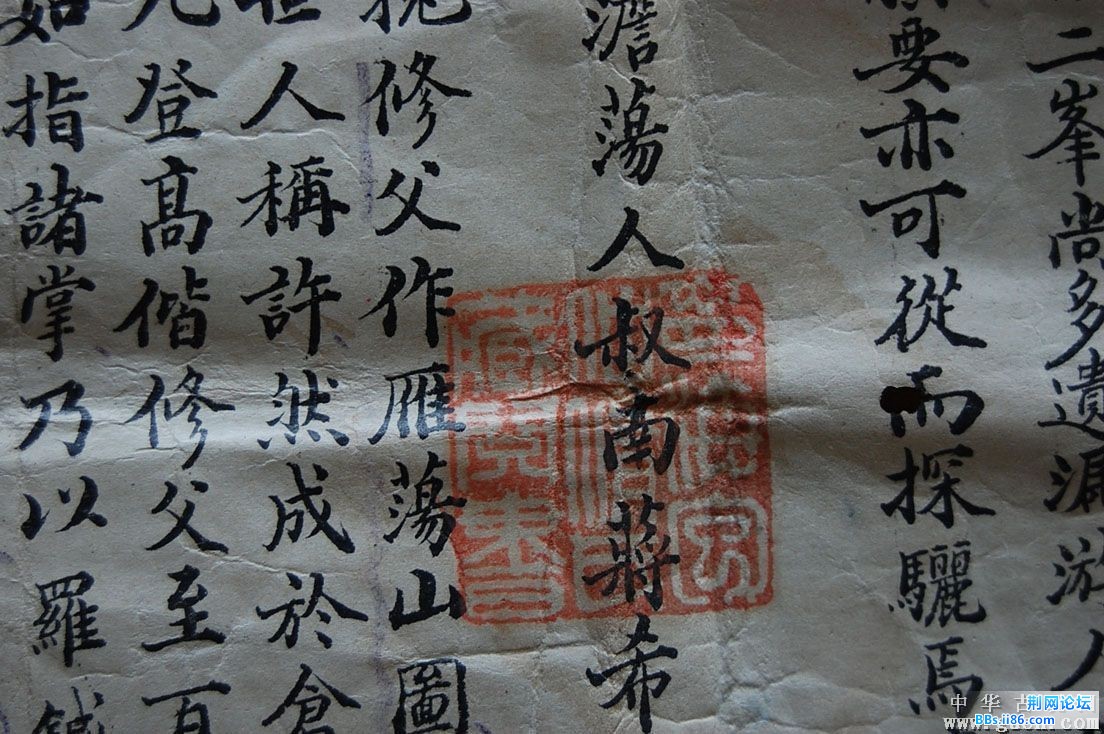 二峯尚多遺漏游人
要亦可從而探驪焉
澹蕩人叔南蔣希
修父作雁蕩山圖
人稱許然成於倉
登高偕修父至百
如指諸掌乃以羅鍼
中华古
荆网论坛
BBs.ji86.com